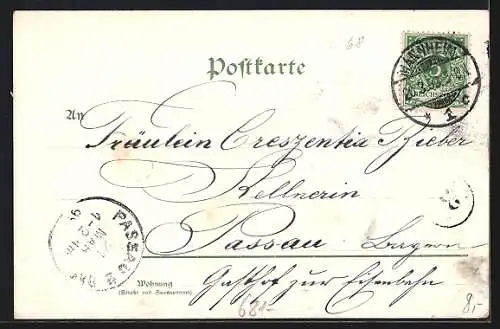 68
Postkarte
MANNHEIM
5
1 C
An
Fräulein Creszentia Bieber
Kellnerin
Passau Bayern
Gasthof zur Eisenbahn
PASSAU
MAR
Wohnung
(Straße und Hausnummer)
68-
8,-